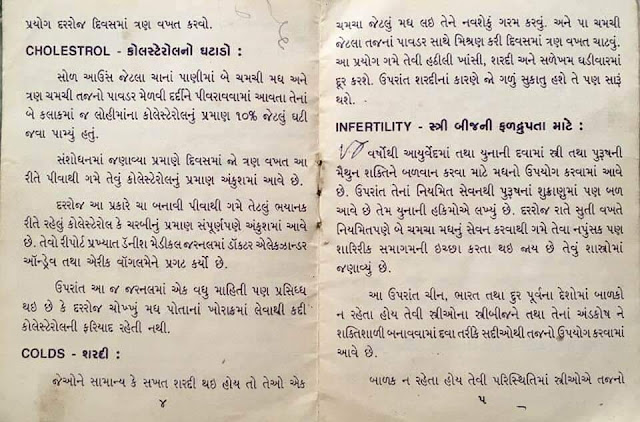 પ્રયોગ દરરોજ દિવસમાં ત્રણ વખત કરવો.
CHOLESTROL - કોલસ્ટેરોલનો ઘટાડો :
સોળ આઉંસ જેટલા ચાનાં પાણીમાં બે ચમચી મધ અને
ત્રણ ચમચી તજનો પાવડર મેળવી દર્દીને પીવરાવવામાં આવતા તેનાં
બે કલાકમાં જ લોહીમાંના કોલેસ્ટેરોલનું પ્રમાણ ૧૦% જેટલું ઘટી
જવા પામ્યું હતું.
સંશોધનમાં જણાવ્યા પ્રમાણે દિવસમાં જો ત્રણ વખત આ
રીતે પીવાથી ગમે તેવું કોલેસ્ટેરોલનું પ્રમાણ અંકુશમાં આવે છે.
દરરોજ આ પ્રકારે ચા બનાવી પીવાથી ગમે તેટલું ભયાનક
રીતે રહેલું કોલેસ્ટેરોલ કે ચરબીનું પ્રમાણ સંપૂર્ણપણે અંકુશમાં આવે
છે. તેવો રીપોર્ટ પ્રખ્યાત ડેંનીશ મેડીકલ જરનલમાં ડૉકટર એલેકઝાન્ડર
ઑન્ડ્રેવ તથા એરીક વૉગલમેને પ્રગટ કર્યો છે.
ઉપરાંત આ જ જરનલમાં એક વધુ માહિતી પણ પ્રસિધ્ધ
થઇ છે કે દરરોજ ચોખ્ખું મધ પોતાનાં ખોરાકમાં લેવાથી કદી
કોલેસ્ટેરોલની ફરિયાદ રહેતી નથી.
COLDS - શરદી :
જેઓને સામાન્ય કે સખત શરદી થઇ હોય તો તેઓ એક
૪
ચમચા જેટલું મધ લઇ તેને નવશેકું ગરમ કરવું. અને પા ચમચી
જેટલા તજનાં પાવડર સાથે મિશ્રણ કરી દિવસમાં ત્રણ વખત ચાટવું.
આ પ્રયોગ ગમે તેવી હઠીલી ખાંસી, શરદી અને સળેખમ ઘડીવારમાં
દૂર કરશે. ઉપરાંત શરદીનાં કારણે જો ગળું સુકાતુ હશે તે પણ સારૂં
થશે.
INFERTILITY - સ્ત્રી બીજની ફળદ્રુપતા માટે :
વર્ષોથી આયુર્વેદમાં તથા યુનાની દવામાં સ્ત્રી તથા પુરૂષની
મૈથુન શક્તિને બળવાન કરવા માટે મધનો ઉપયોગ કરવામાં આવે
છે. ઉપરાંત તેનાં નિયમિત સેવનથી પુરૂષનાં શુક્રાણુમાં પણ બળ
આવે છે તેમ યુનાની હકિમોએ લખ્યું છે. દરરોજ રાતે સુતી વખતે
નિયમિતપણે બે ચમચા મધનું સેવન કરવાથી ગમે તેવા નપુંસક પણ
શારિરીક સમાગમની ઇચ્છા કરતા થઇ જાય છે તેવું શાસ્ત્રોમાં
જણાવ્યું છે.
આ ઉપરાંત ચીન, ભારત તથા દુર પૂર્વના દેશોમાં બાળકો
ન રહેતા હોય તેવી સ્ત્રીઓના સ્ત્રીબીજને તથા તેનાં અંડકોષ ને
શક્તિશાળી બનાવવામાં દવા તરીકે સદીઓથી તજનો ઉપયોગ કરવામાં
આવે છે.
બાળક ન રહેતા હોય તેવી પરિસ્થિતિમાં સ્ત્રીઓએ તજનો
૫